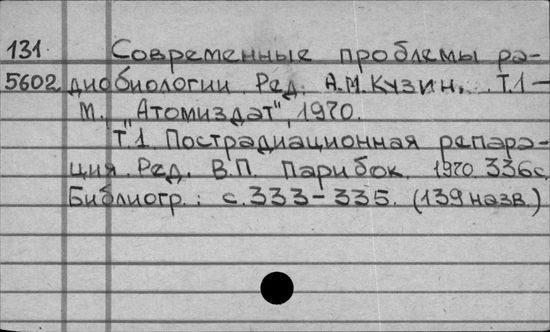 131 Современные проблемы ра-
5602 диобиологии. Ред. А.М.Кузин. Т.1-
М. "Атомиздат", 1970.
Т.1. Пострадиационная репара-
ция. Ред. В.П. Парибок. 1970. 336с.
Библиогр.: с.333-335. (139 назв.)